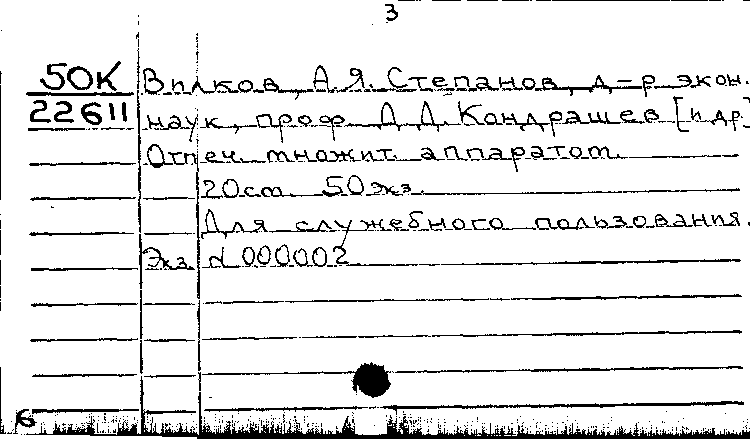 3
50К Вилков, А.Я. Степанов, д-р экон.
22611 наук, проф. Д.Д. Кондрашев [и др.]
Отпеч. множит. аппаратом.
20 ст. 50 экз.
Для служебного пользования.
Экз. № 000002
6